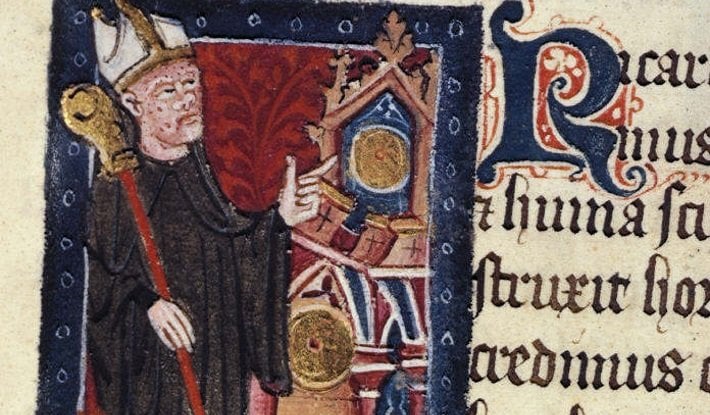 Ricar
mus
& huina sci
struxit hor
credimus